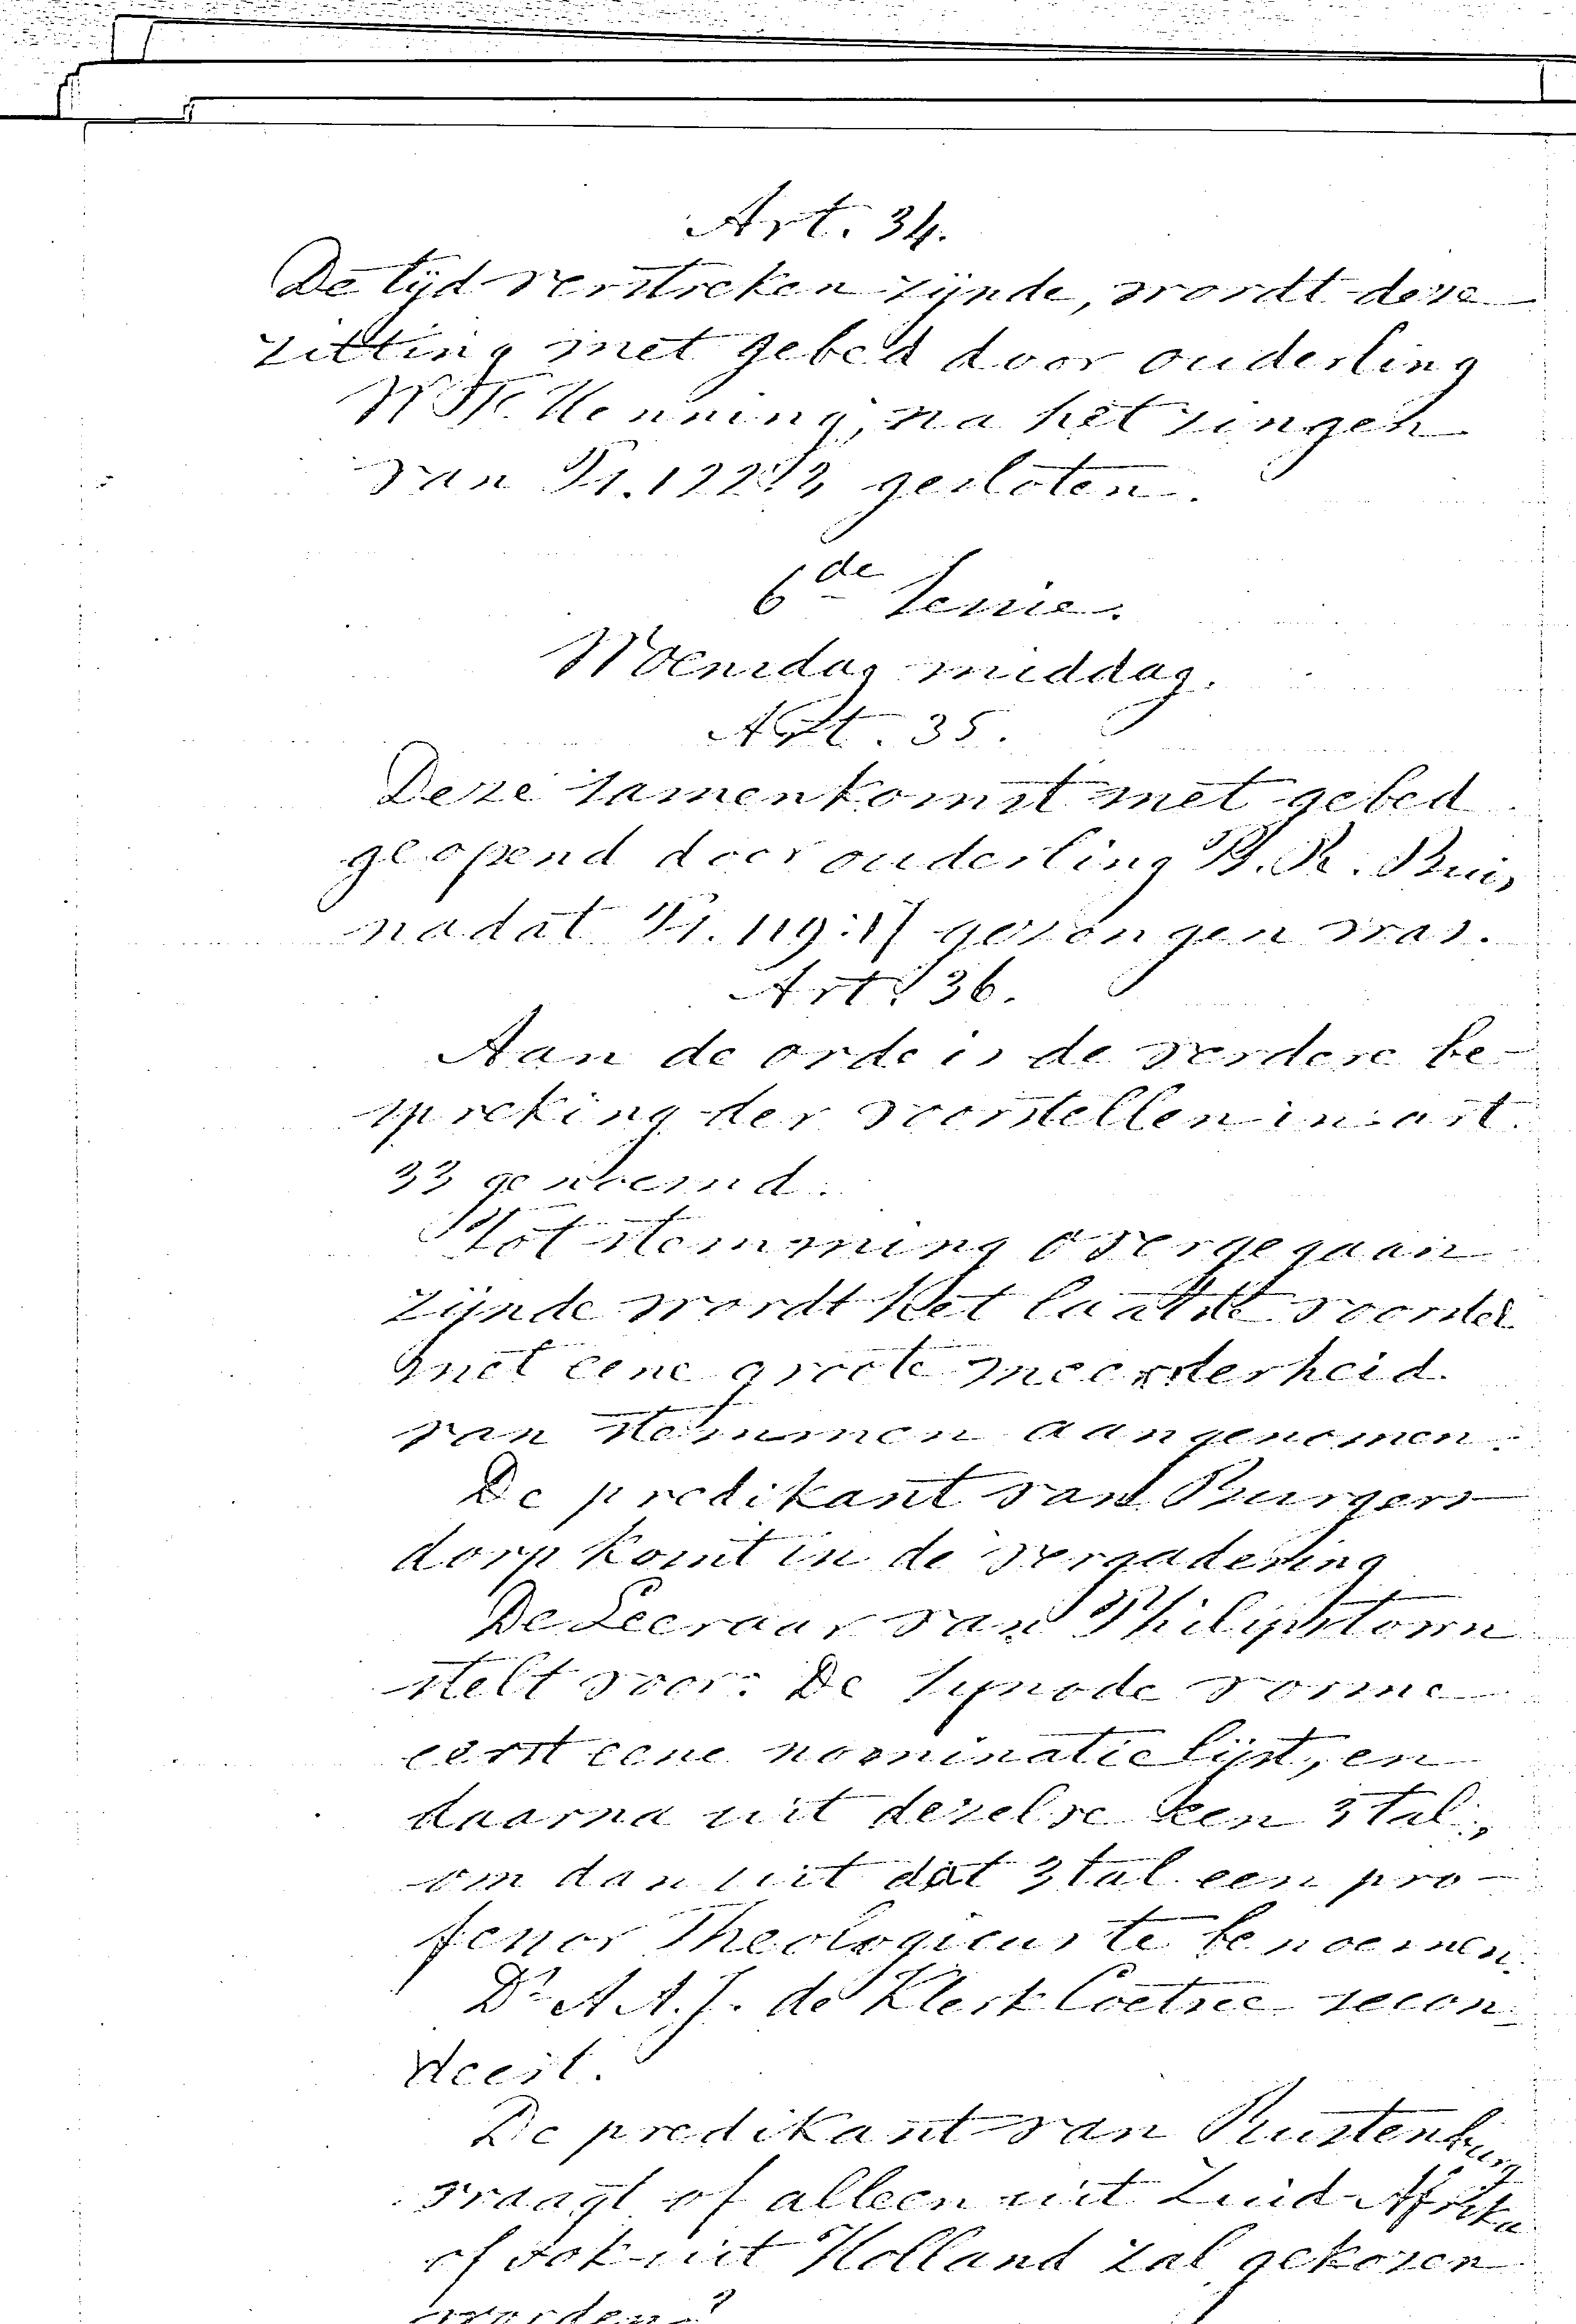 Art. 34.
De tijd verstreken zijnde, wordt deze
zitting met gebed door ouderling
Henning, na het zingen
van Ps. 122:3 gesloten.
6de Sessie.
Woensdag middag.
Art. 35.
Deze samenkomst met gebed
geopend door ouderling P. R. Buis,
nadat Ps. 119:17 gezongen was.
Art. 36.
Aan de orde is de verdere be-
spreking der voorstellen in art.
33 genoemd.
Tot stemming overgegaan
zijnde wordt het laatste voorstel
met eene groote meerderheid
van stemmen aangenomen.
De predikant van Burgers-
dorp komt in de vergadering
De Leeraar van Philipstown
stelt voor: De Synode vorme
eerst eene nominatie lijst, en
daarna uit dezelve een 3tal,
om dan uit dat 3tal een pro-
fessor Theologicus te benoemen.
Ds A A. J. de Klerk Coetzee secon-
deert.
De predikant van Rustenburg
vraagt of alleen uit Zuid-Afrika
of ook uit Holland zal gekozen
worden?